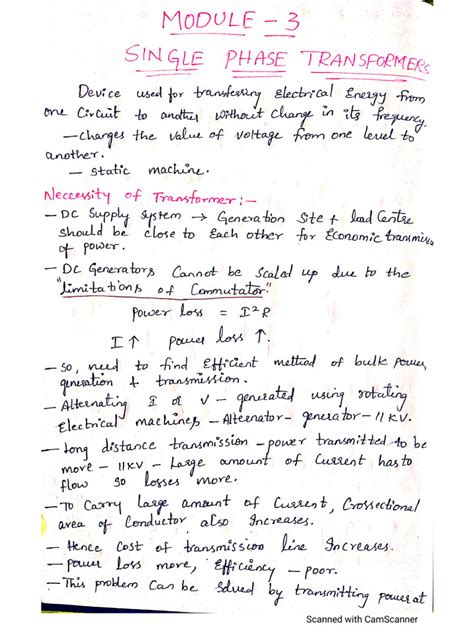 MODULE - 3
SINGLE PHASE TRANSFORMERS
Device used for transferring Electrical Energy from
one Circuit to another without change in its frequency.
- changes the value of voltage from one level to
another.
- static machine.
Neccessity of Transformer:-
- DC Supply system → Generation Site + load Centre
should be close to Each other for Economic transmissio
of power.
- DC Generators Cannot be Scaled up due to the
"limitations of Commutator"
power loss = I²R
I ↑ power loss ↑.
- So, need to find Efficient method of bulk power
generation + transmission.
- Alternating I or V - generated using rotating
Electrical machines - Alternator - generator - 11 KV.
- Long distance transmission - power transmitted to be
more - 11KV - Large amount of Current has to
flow so losses more.
- To Carry large amount of Current, Crossectional
area of Conductor also Increases.
- Hence Cost of transmission line Increases.
- power loss more, Efficiency - poor.
- This problem Can be Solved by transmitting power at
Scanned with CamScanner